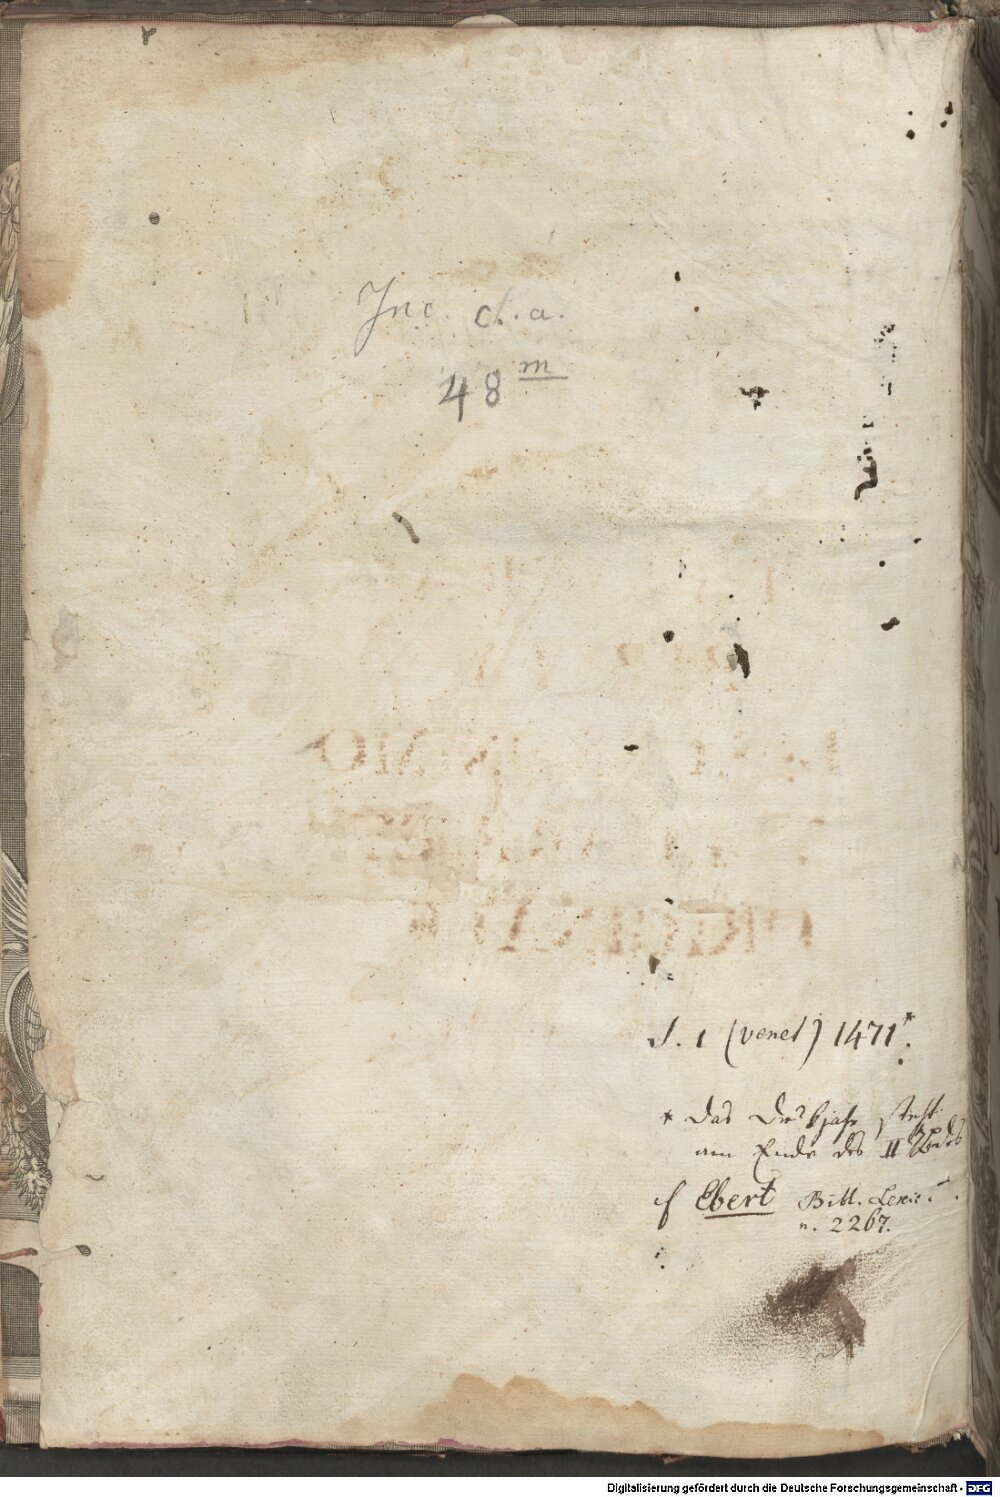 Inc. c. a.
48 m
S. l (venet) 1471*.
* Das Druckjahr steht
am Ende des II
cf Ebert Bibl. Lexic.
n. 2267.
Digitalisierung gefördert durch die Deutsche Forschungsgemeinschaft - DFG